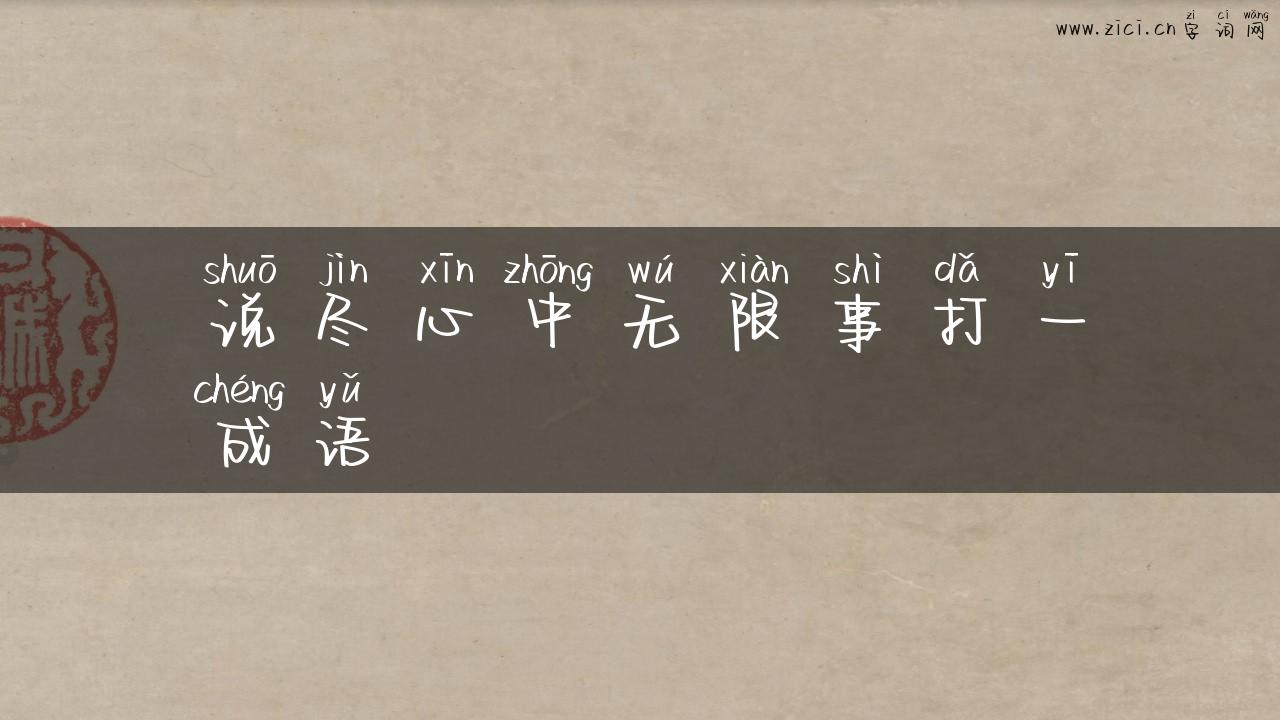 zì cí wǎng
www.zici.cn 字词网
shuō jìn xīn zhōng wú xiàn shì dǎ yī
说尽心中无限事打一
chéng yǔ
成语